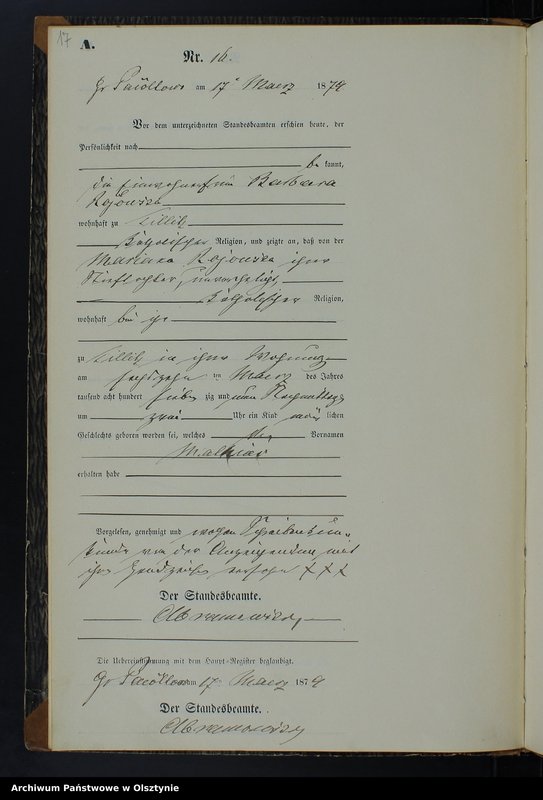 17
A.
Nr. 16.
Gr Paiollow am 17 Maerz 1879
Vor dem unterzeichneten Standesbeamten erschien heute, der
Persönlichkeit nach
be kannt,
die Einwohnerfrau Barbara
wohnhaft zu
katholischer Religion, und zeigte an, daß von der
Marianna ihrer
Stieftochter, unverehelicht
katholischer Religion,
wohnhaft bei ihr
zu in ihrer Wohnung
am sechszehn ten Maerz des Jahres
tausend acht hundert sieben zig und neun Nachmittags
um zwei Uhr ein Kind männ lichen
Geschlechts geboren worden sei, welches den Vornamen
Mathias
erhalten habe
Vorgelesen, genehmigt und wegen Schreibensun-
kunde von der Anzeigenden mit
ihrem Handzeichen versehen XXX
Der Standesbeamte.
Abramowski
Die Uebereinstimmung mit dem Haupt-Register beglaubigt.
Gr Paiollow am 17 Maerz 1879
Der Standesbeamte.
Abramowski
Archiwum Państwowe w Olsztynie